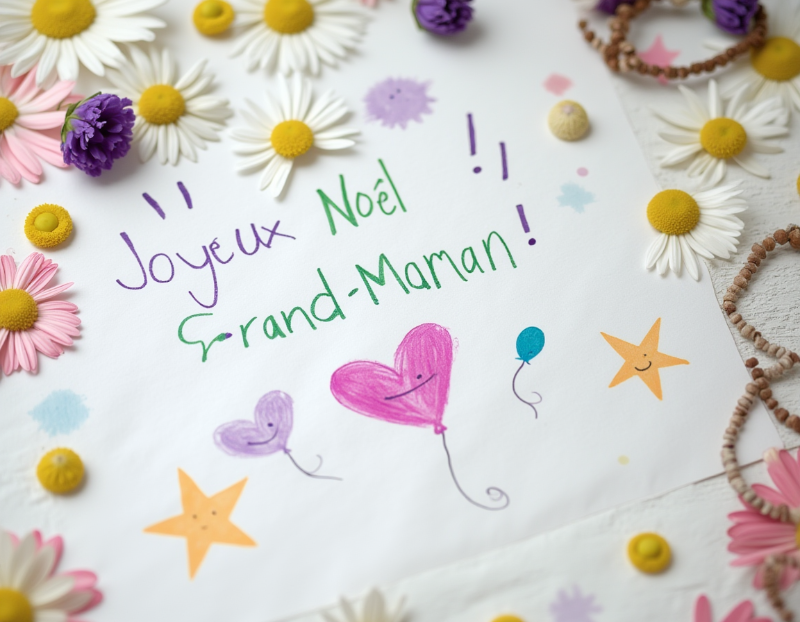 Joyeux Noël !!
Grand-Maman !